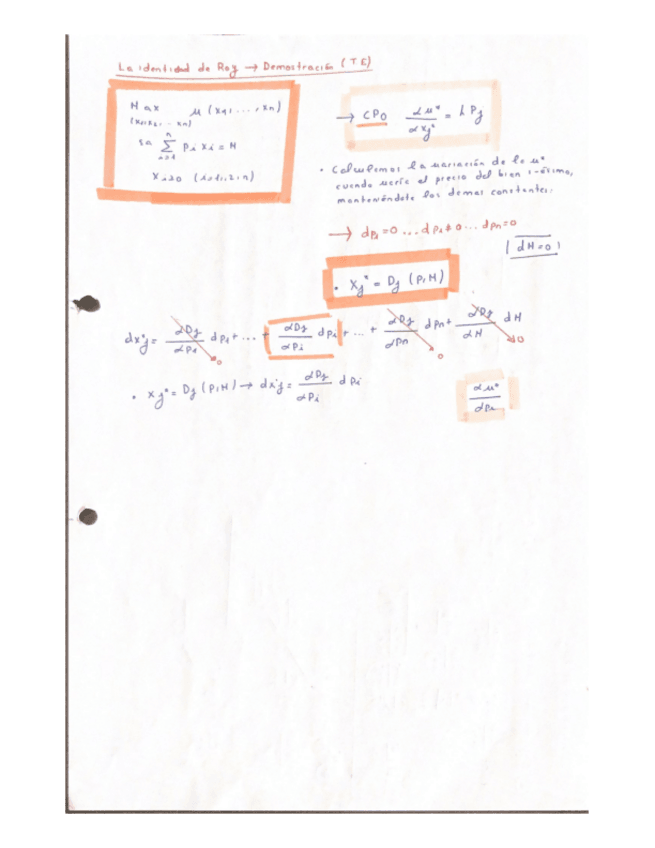 La identidad de Roy → Demostración (TE)
Max u (x1, ..., xn)
(x1, x2, ... xn)
sa n∑i=1 pi xi = M
xi≥0 (i=1,2,n)
→ CPO ∂u*/∂xj* = λ Pj
• Calculemos la variación de la u*
cuando varíe el precio del bien i-ésimo,
manteniéndote los demas constantes:
→ dp1=0 ... dpi≠0 ... dpn=0
(dM=0)
• xj* = Dj (p,M)
dx*j = ∂Dj/∂p1 dp1 + ... + ∂Dj/∂pi dpi + ... + ∂Dj/∂pn dpn + ∂Dj/∂M dM
0 0 0
• xj* = Dj (p,M) → dx*j = ∂Dj/∂pi dpi
∂u*/∂pi